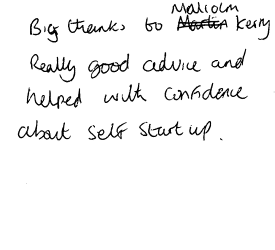 Big thanks to Malcolm Kerry
Really good advice and
helped with confidence
about self start up.